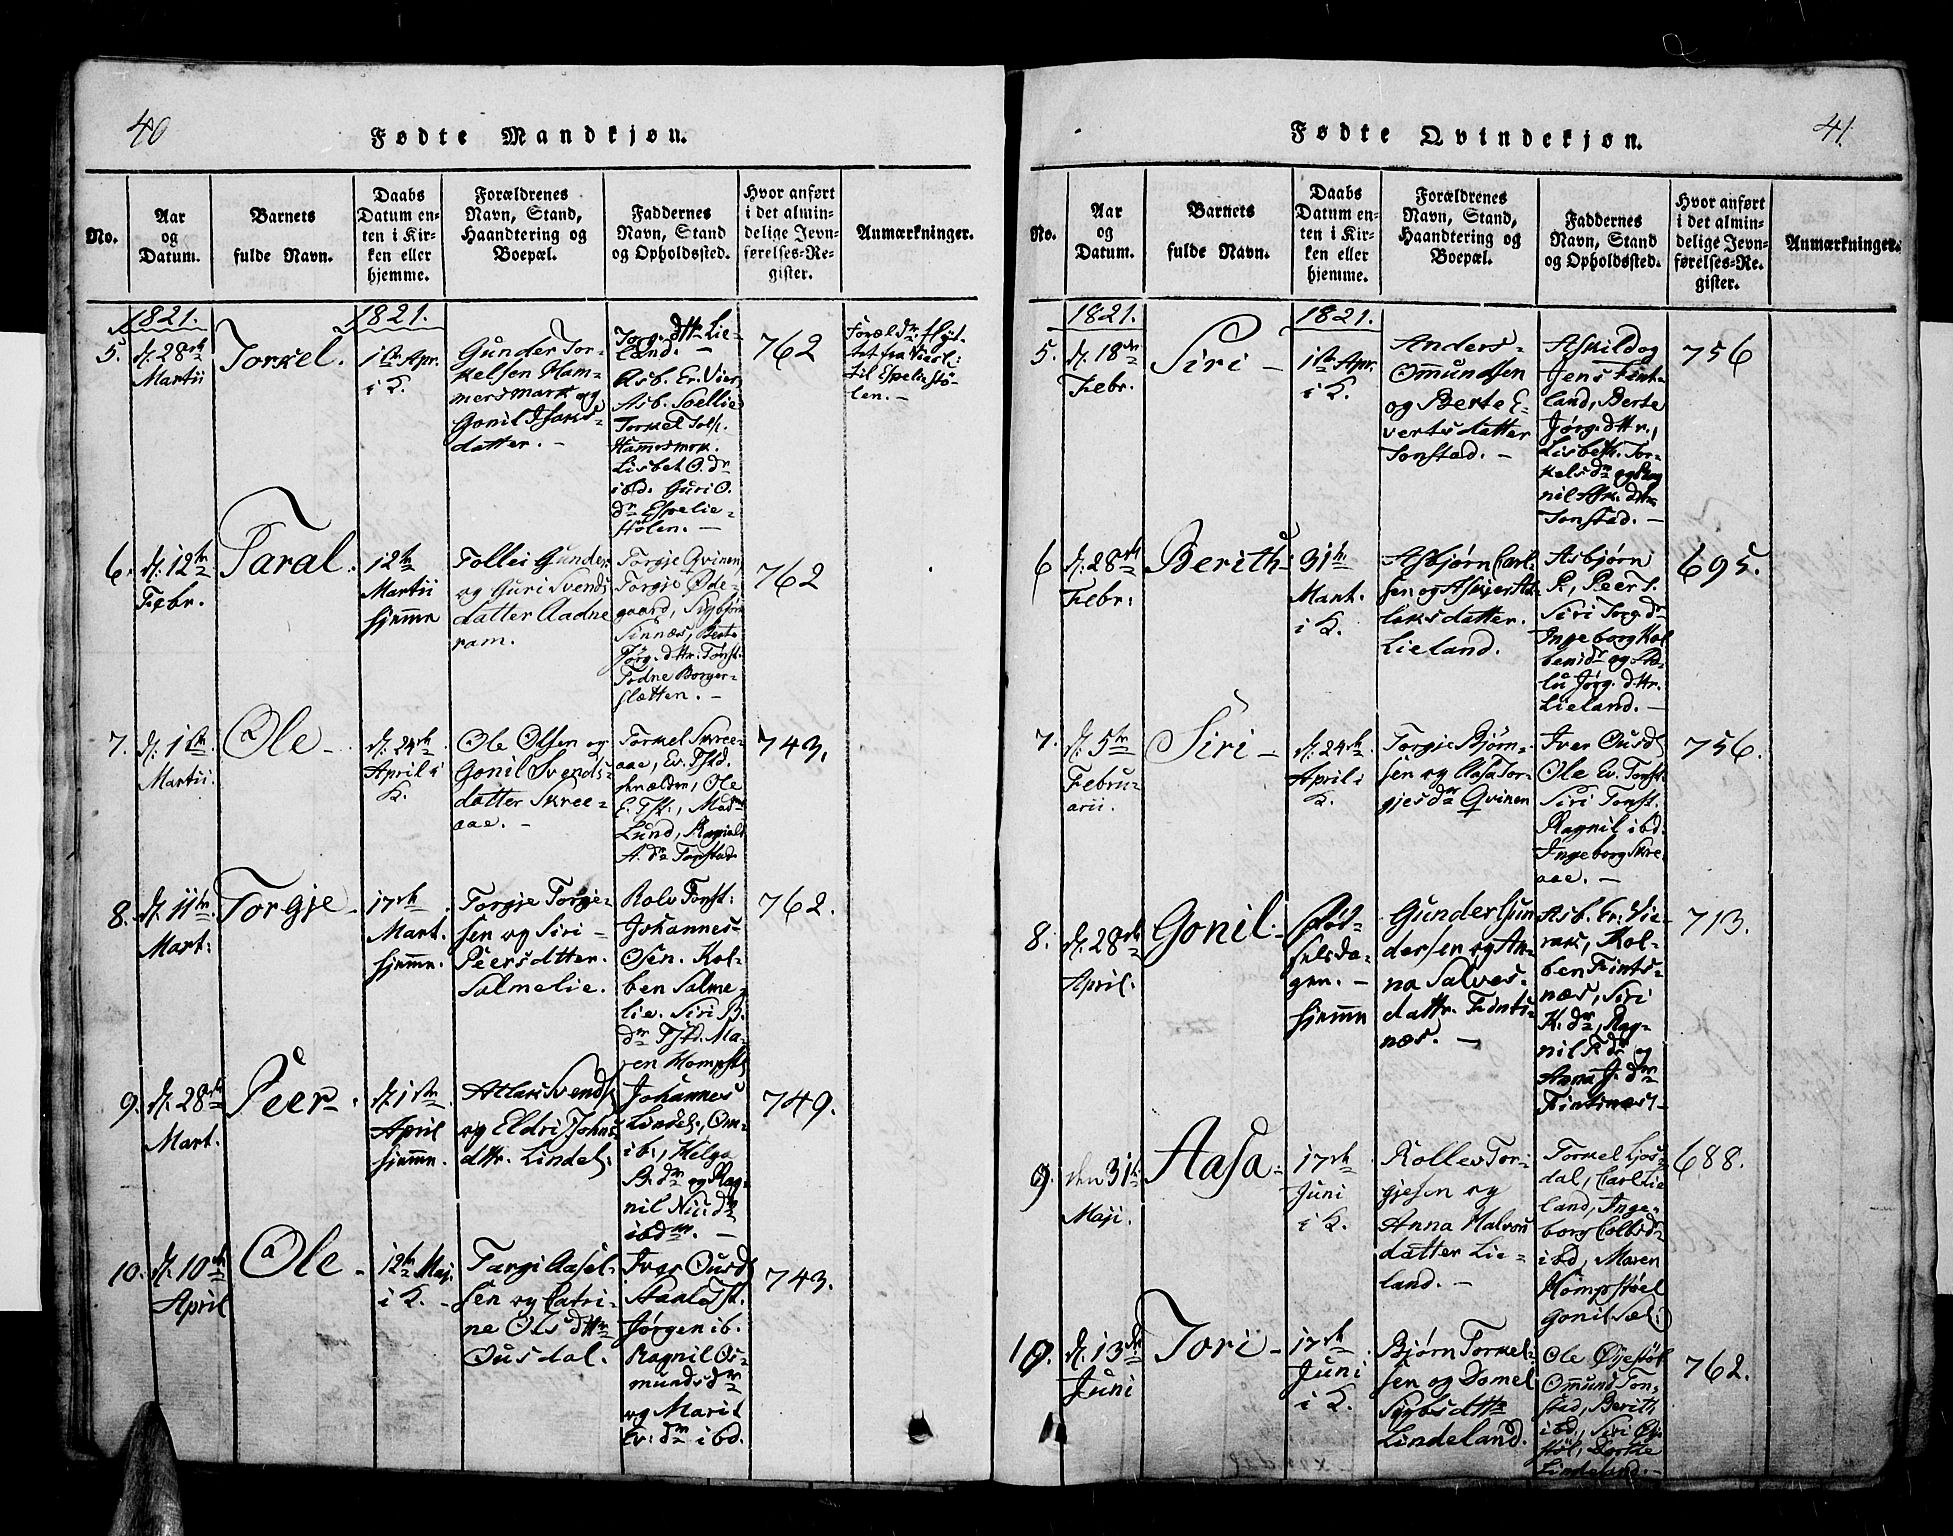 40
Fødte Mandkjøn.
No.
Aar
og
Datum.
Barnets
fulde Navn.
Daabs
Datum en-
ten i Kir-
ken eller
hjemme.
Forældrenes
Navn, Stand,
Haandtering og
Boepæl.
Faddernes
Navn, Stand
og Opholdssted.
Hvor anført
i det almin-
delige Jevn-
førelses-Re-
gister.
Anmærkninger.
1821.
1821.
5.
d. 28de
Martii
Torkel.
1ste Apr.
i K.
Gunder Tor-
kelsen Ham-
mersmark og
Gonil Isaks-
datter. -
land. -
Asb. Er. Vier
Torkel Tols.
Lisbet O. dr
ibd. Guri O.
dr Espelie-
stølen. -
762
Foræld: flyt-
tet fra
til Espeliestø-
len. -
6.
d. 12te
Febr.
Taral.
12te
Martii
hjemme
Tollei Gunders
og Guri Svends
datter Aadne
ram.
Torgje Qvinen
Torgje Øde-
gaard, Sigbjørn
Sinnæs, Berte
Jørg. dttr. Tonst.
Todne Borger-
slætten. -
762
7.
d. 1ste
Martii.
Ole -
d. 24de
April i
K.
Ole Olsen og
Gonil Svends-
datter Skree-
aae. -
Torkel Skree-
aae, Ev. Tstd.
Ole
E. Tst.,
Lund, Ragnild
A. dr Tonstad
743.
8.
d. 11te
Mart:
Torgje -
17de
Mart.
hjemme.
Torgje Torgje-
sen og Siri -
Peersdtter.
Salmelie.
Rolv Tonst:
Johannes
Osen. Kol-
ben Salme-
lie. Siri B.
dr Tstd. Ma-
ren Hompst.
762.
9.
d. 28de
Mart.
Peer -
d. 1ste
April
hjemme.
Atlak Svends
og Eldri Johns
dttr. Lindel:
Johannes
Lindel., Om.
ib:, Helga
B. dr og Rag-
nil Nils dr
ibdm. -
749.
10.
d. 10de
April
Ole -
12te Maj.
i K. -
Targi Aasel-
sen og Catri-
ne Ols dttr
Ousdal.
Iver Ousd
Stanle Tst.
Jørgen ib.
Ragnil Os-
munds dr
og Marit
Ev: dr ibd.
743.
41.
Fødte Qvindekjøn.
No.
Aar
og
Datum.
Barnets
fulde Navn.
Daabs
Datum en-
ten i Kir-
ken eller
hjemme.
Forældrenes
Navn, Stand,
Haandtering og
Boepæl.
Faddernes
Navn, Stand
og Opholdssted.
Hvor anført
i det almin-
delige Jevn-
førelses-Re-
gister.
Anmærkninger.
1821.
1821.
5.
d. 18de
Febr.
Siri -
1ste Apr.
i K.
Anders -
Omundsen
og Berte E-
vertsdatter
Tonstad. -
Askild og
Jens Fint-
land, Berte
Jørg. dttr.,
Lisbeth. Tor-
kels dr og Rag
nil Ask. dttr
Tonstad. -
756
6
d. 28de
Febr:
Berith -
31te
Mart.
i K.
Asbjørn Carl-
sen og Asgjer At-
laksdatter.
Lieland.
Asbjørn
P., Peer T.
Siri Torg. dr
Ingeborg Kol
bens dr og
lu Jørg. dttr.
Lieland. -
695.
7.
d. 5te
Febru-
arii.
Siri -
d. 24de
April i
K.
Torgje Bjørn-
sen og Aasa Tor-
gjes dr Qvinen
Iver Ousd
Ole Ev. Tonst.
Siri Tonst.
Ragnil ibd.
Ingeborg Skre-
aae. -
756.
8.
d. 28de
April.
Gonil -
Fød-
selsda-
gen. -
hjemme
Gunder Gun
dersen og An-
na Salves-
dattr. Fints-
næs. -
Asb. Er: Vie-
rak, Kol-
ben Fints-
næs, Siri
K. dr, Rag-
nil K dr og
Anna J. dr
Fintsnæs -
713.
9.
den 31te
Maji.
Aasa -
17de
Juni
i K.
Rollev Tor-
gjesen og
Anna Halvors
datter Lie-
land. -
Torkel Ljos-
dal, Carl Lie
land, Inge-
borg Colbs d
ibd, Maren
Hompstøel
Gonil Sel.
688.
10.
d. 13de
Juni
Tori -
17de
Juni
i K.
Bjørn Torkel-
sen og Domel
Sigbs dttr
Lindeland.
Ole Øyestøl
Omund Ton-
stad, Berith
ibd., Siri Øye
støl, Dorthe
Lindeland. -
762.